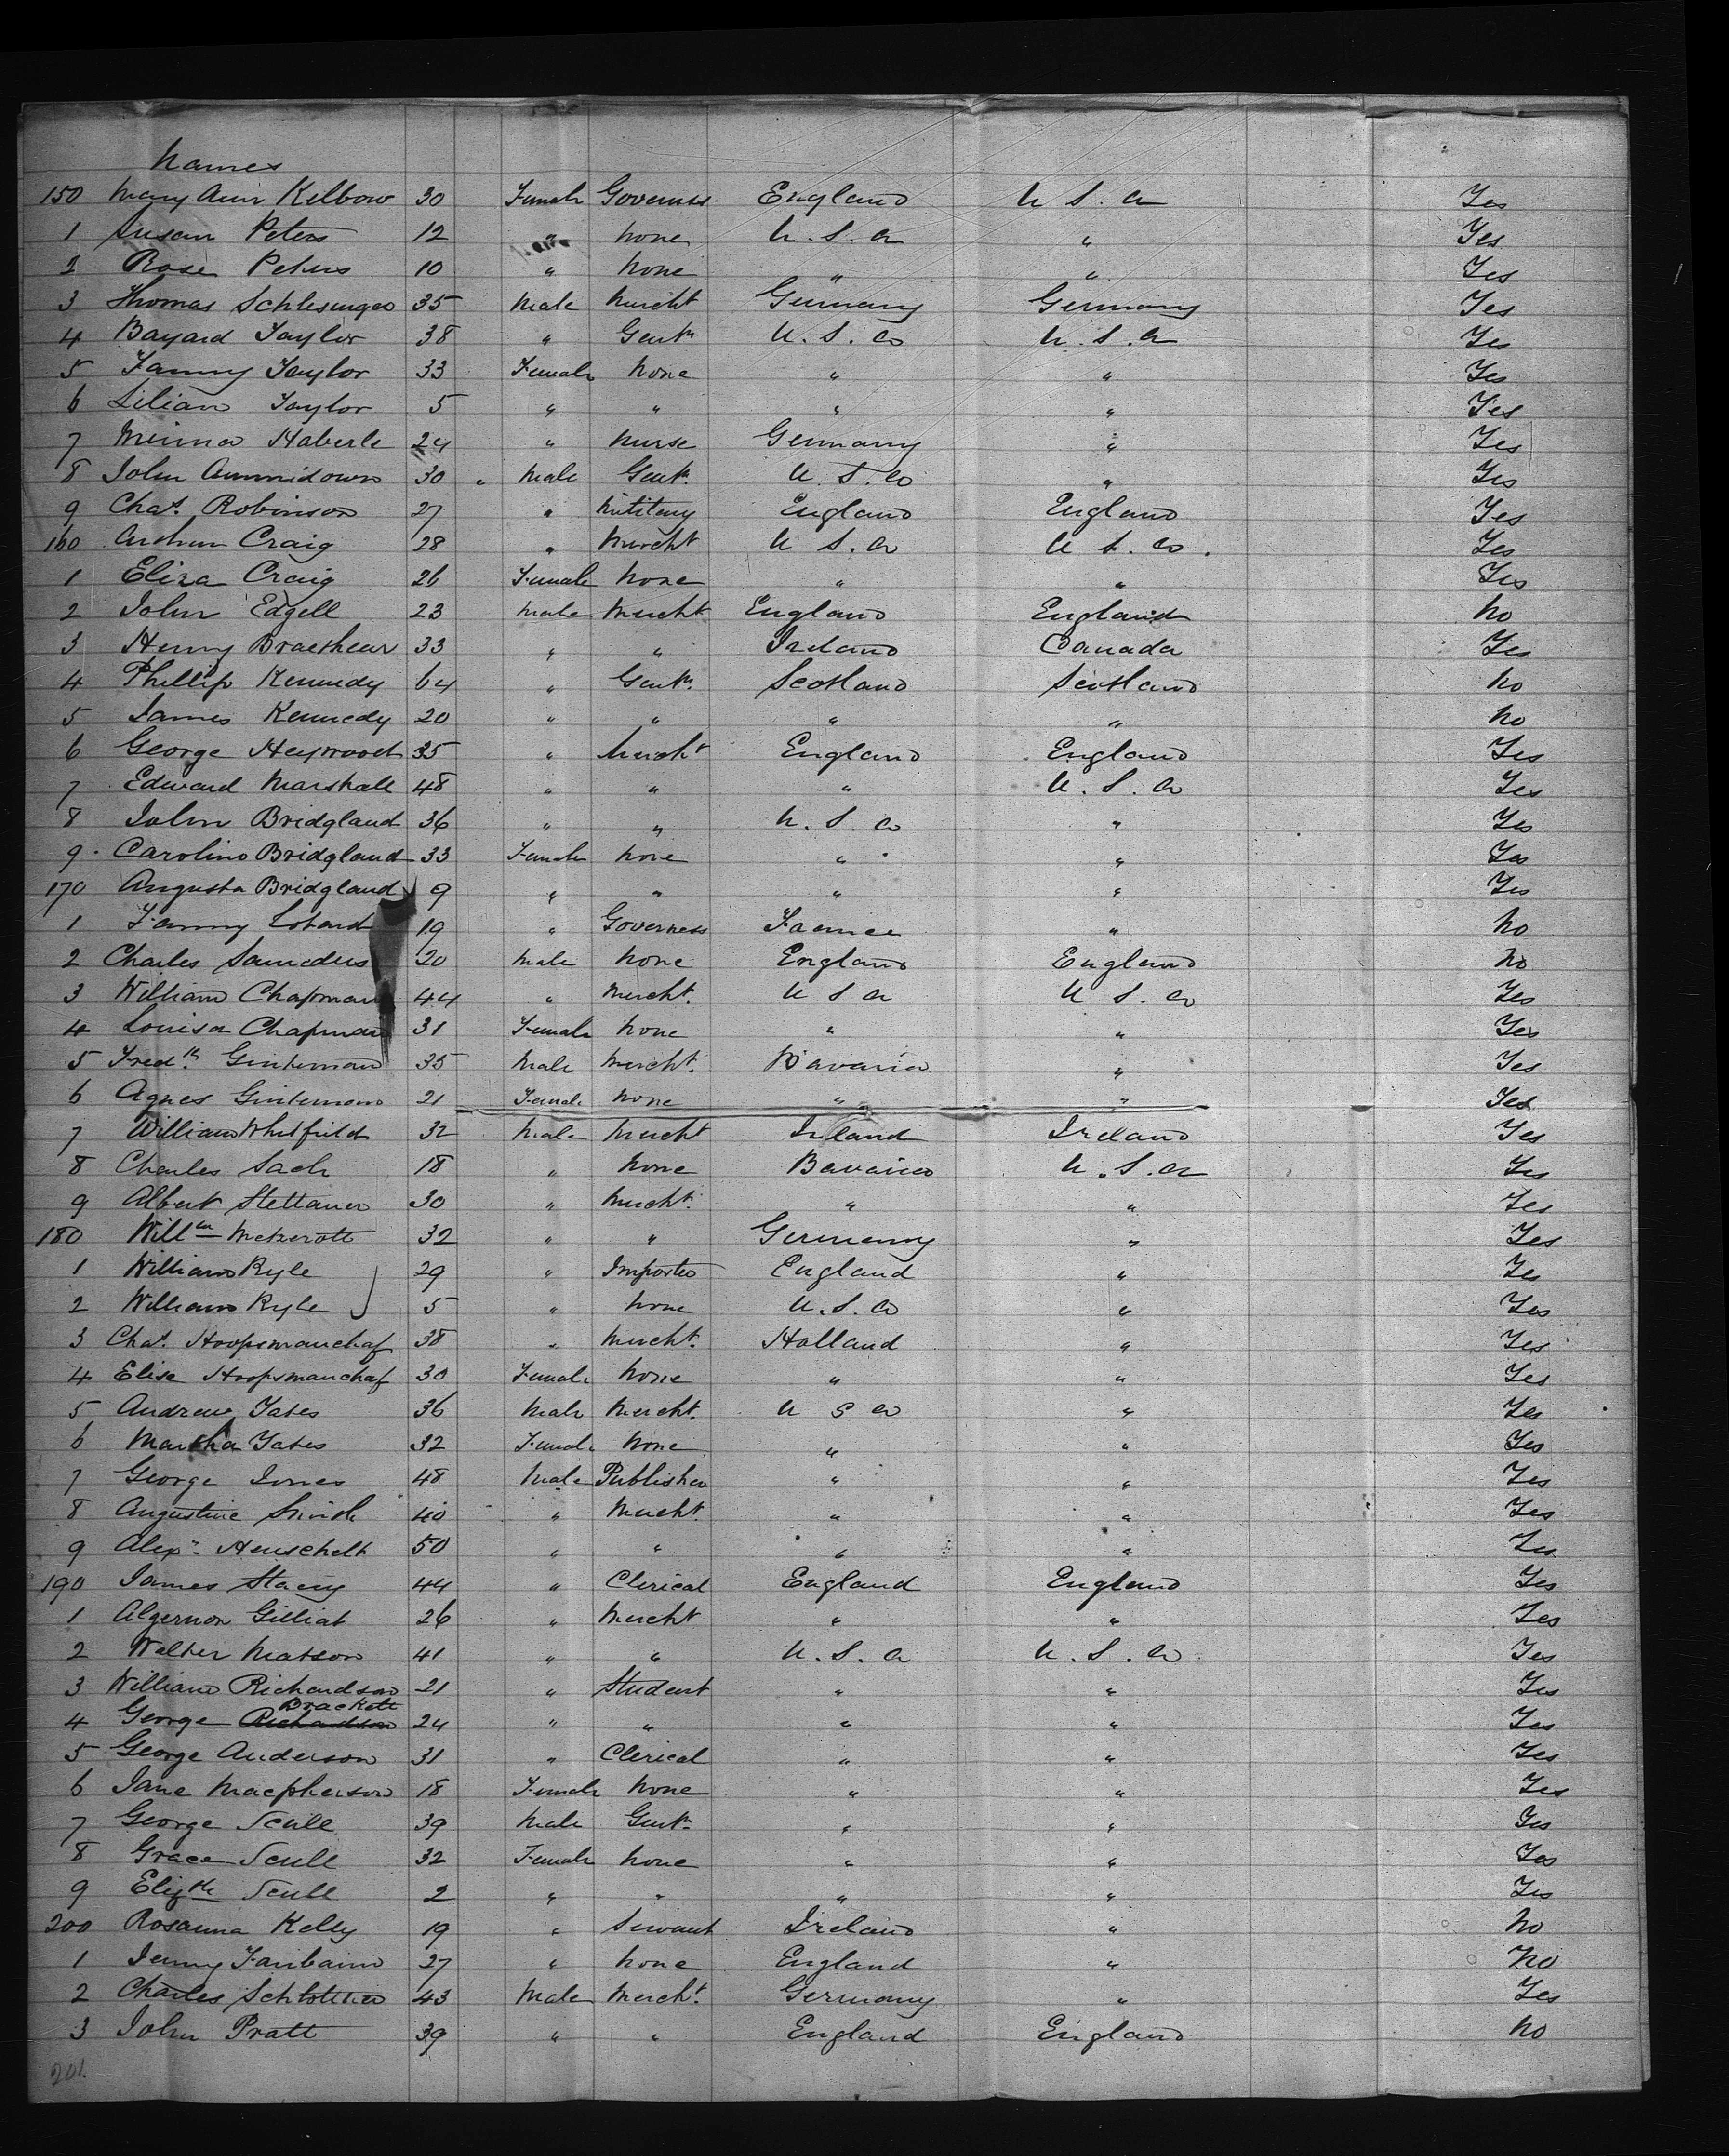 Names
150 Mary Ann Kelbow 30 Female Governess England U S. A Yes
1 Susan Peters 12 " None U. S. A " Yes
2 Rose Peters 10 " None " " Yes
3 Thomas Schlesinger 35 Male Mercht Germany Germany Yes
4 Bayard Taylor 38 " Gentn U. S. A U. S. A Yes
5 Fanny Taylor 33 Female None " " Yes
6 Lilian Taylor 5 " " " " Yes
7 Minna Haberle 24 " Nurse Germany " Yes
8 John Ammidown 30 " Male Gentn U. S. A " Yes
9 Chas. Robinson 27 " Military England England Yes
160 Arthur Craig 28 " Mercht U S. A U S. A. Yes
1 Eliza Craig 26 Female None " " Yes
2 John Edgell 23 Male Mercht England England No
3 Henry Braethear 33 " " Ireland Canada Yes
4 Phillip Kennedy 64 " Gentn. Scotland Scotland No
5 James Kennedy 20 " " " " No
6 George Heywood 35 " Mercht England England Yes
7 Edward Marshall 48 " " " U. S. A Yes
8 John Bridgland 36 " " U. S. A " Yes
9 Caroline Bridgland 33 Female None " " Yes
170 Augusta Bridgland 9 " " " " Yes
1 Fanny Lotard 19 " Governess France " No
2 Charles Saunders 20 Male None England England No
3 William Chapman 44 " Mercht. U S A U S. A Yes
4 Louisa Chapman 31 Female None " " Yes
5 Fredk. Ginterman 35 Male Mercht. Bavaria " Yes
6 Agnes Ginterman 21 Female None " " Yes
7 William Whitfield 32 Male Mercht Ireland Ireland Yes
8 Charles Sach 18 " None Bavaria U. S. A Yes
9 Albert Stettauer 30 " Mercht. " " Yes
180 Willm Metzerott 32 " " Germany " Yes
1 William Ryle 29 " Importer England " Yes
2 William Ryle 5 " None U. S. A " Yes
3 Chas. Hoopsmanchaf 38 " Mercht. Holland " Yes
4 Elise Hoopsmanchaf 30 Female None " " Yes
5 Andrew Yates 36 Male Mercht. U S A " Yes
6 Martha Yates 32 Female None " " Yes
7 George Jones 48 Male Publisher " " Yes
8 Augustine Smith 40 " Mercht. " " Yes
9 Alexr. Henschelt 50 " " " " Yes
190 James Stacey 44 " Clerical England England Yes
1 Algernon Gilliat 26 " Mercht " " Yes
2 Walter Matson 41 " " U. S. A U. S. A Yes
3 William Richardson 21 " Student " " Yes
4 George Richardson Brackett 24 " " " " Yes
5 George Anderson 31 " Clerical " " Yes
6 Jane Macpherson 18 Female None " " Yes
7 George Scull 39 Male Gentn " " Yes
8 Grace Scull 32 Female None " " Yes
9 Elizth Scull 2 " " " " Yes
200 Rosanna Kelly 19 " Servant Ireland " No
1 Jenny Fairbairn 27 " None England " No
2 Charles Schlotther 43 Male Mercht. Germany " Yes
3 John Pratt 39 " " England England No
201